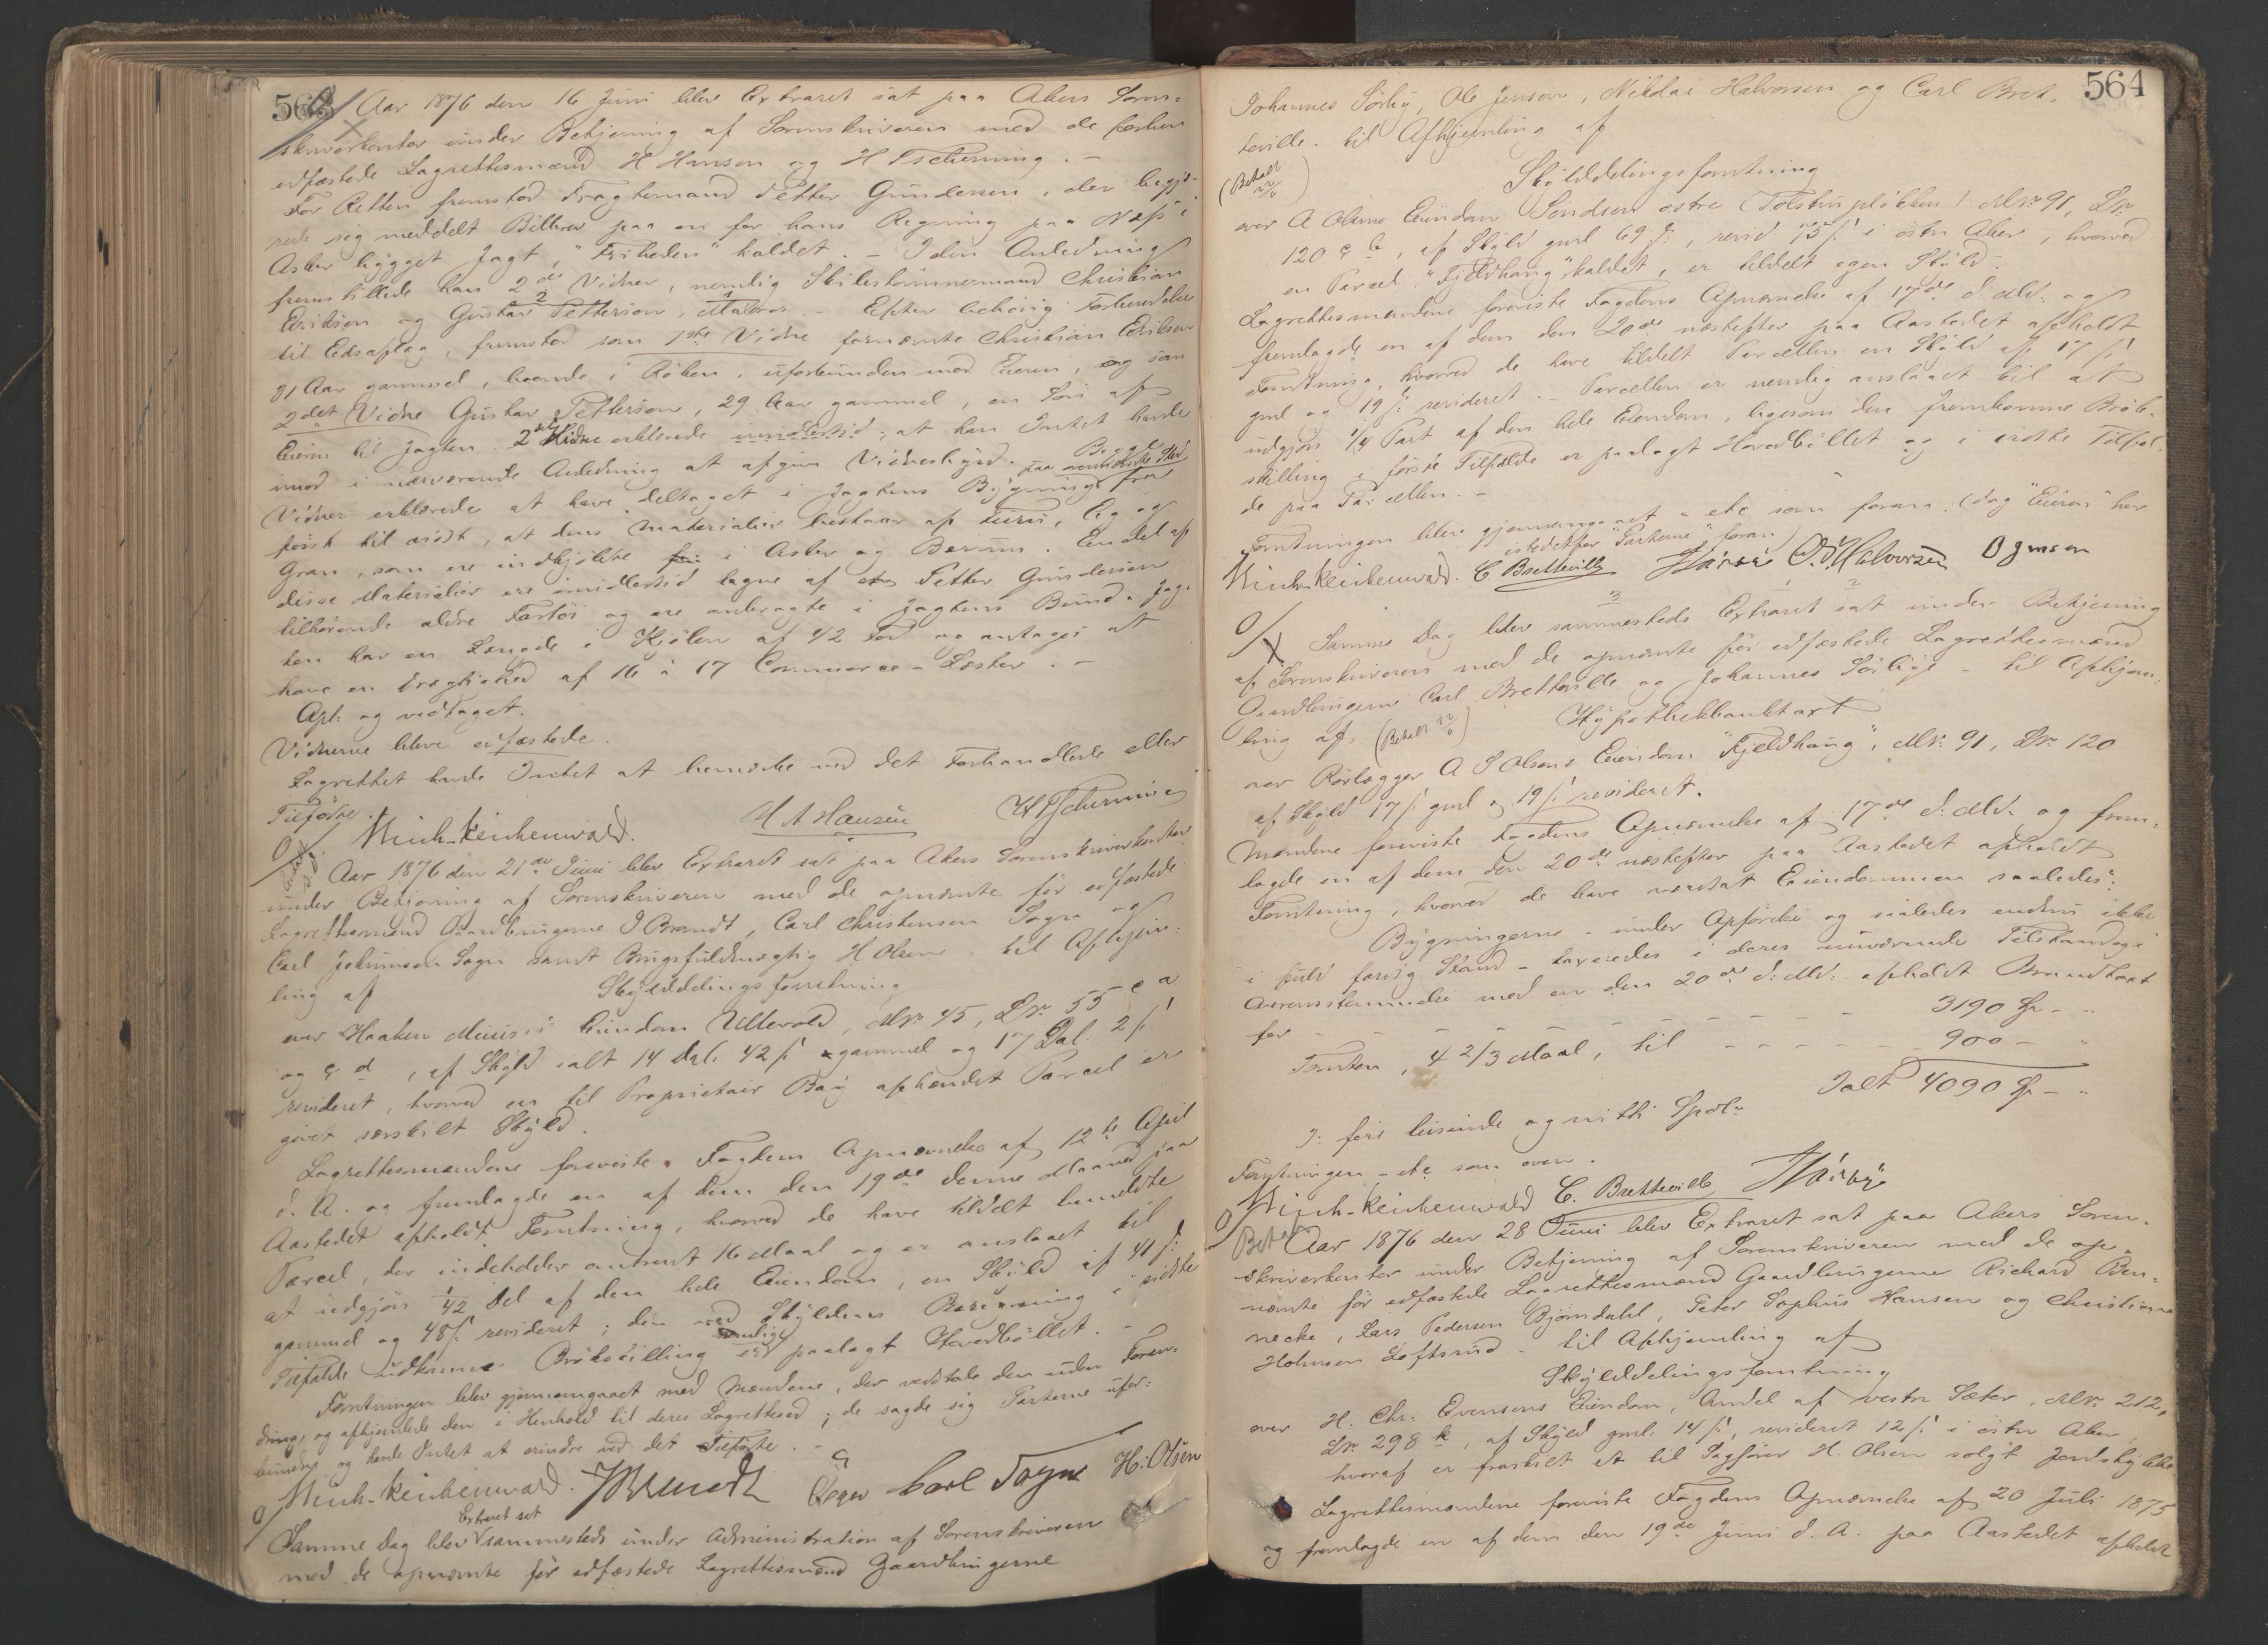 563
Aar 1876 den 16 Juni blev Extraret sat paa Akers Soren-
skriverkontor under Betjening af Sorenskriveren med de forhen
edfæstede Lagrettesmænd H Hansen og H Tscherning. –
For Retten fremstod Fragtemand Petter Gundersen, der begjæ-
rede sig meddelt Bilbrev paa en for hans Regning paa Næss i
Asker bygget Jagt, "Friheden" kaldet. – I den Anledning
fremstillede han 2de Vidner, nemlig Skibstømmermand Christian
Eriksen og Gustav Pettersen, Matros. – Efter behørig Forberedelse
til Edsaflæg, fremstod som 1ste Vidne fornævnte Christian Eriksen
31 Aar gammel, boende i Røken, uforbunden med Eieren, og som
2det Vidne Gustav Pettersen, 29 Aar gammel, en Søn af
Eieren til Jagten. 2det Vidne erklærede imidlertid, at han Intet havde
imod i nærværende Anledning at afgive Vidnesbyrd. Begge
Vidner erklærede at have deltaget i Jagtens Bygning paa ovenanførte Sted fra
først til sidst, at dens Materialier bestaar af Furu, Eg og
Gran, som ere indkjøbte i Asker og Bærum. En del af
disse Materialier ere imidlertid tagne af Petter Gundersen
tilhørende ældre Fartøi og ere anbragte i Jagtens Bund. Jag-
ten har en Længde i Kjølen af 42 Fod og antages at
have en Drægtighed af 16 à 17 Commerce-Læster. –
Opl. og vedtaget.
Vidnerne bleve edfæstede.
Lagrettet havde Intet at bemærke ved det Forhandlede eller
Tilførte.
Münch-Reichenwald. H A Hansen H Tscherning
Aar 1876 den 21de Juni blev Extraret sat paa Akers Sorenskriverkontor
under Betjening af Sorenskriveren med de opnævnte før edfæstede
Lagrettesmænd Gaardbrugerne J Brandt, Carl Christensen Sogn og
Carl Johannsen Sogn samt Brugsfuldmægtig H Olsen – til Afhjem-
ling af
Skylddelingsforretning
over Haaken Mathisens Eiendom Ullevold, Mnr. 45, Lnr. 55 c a
og c d, af Skyld ialt 14 Dal. 42 ß gammel og 17 Dal. 2 ß
revideret, hvorved en til Proprietair Bay afhændet Parcel er
givet særskilt Skyld.
Lagrettesmændene foreviste Fogdens Opnævnelse af 12te April
d. A. og fremlagde en af dem den 19de denne Maaned paa
Aastedet afholdt Forretning, hvorved de have tildelt bemeldte
Parcel, der indeholder omtrent 16 Maal og er anslaaet til
at udgjøre 1/42 Del af den hele Eiendom, en Skyld af 41 ß
gammel og 48 ß revideret; den ved Skyldens Beregning i sidste
Tilfælde udkomne Brøkskilling er nemlig paalagt Hovedbøllet. –
Forretningen blev gjennemgaaet med Mændene, der vedstode den uden Foran-
dring, og afhjemlede den i Henhold til deres Lagretteseed; de sagde sig Parterne ufor-
bundne og havde Intet at erindre ved det Tilførte. –
Münch-Reichenwald. J Brandt C Sogn Carl Sogn H: Olsen
Extraret sat
Samme Dag blev sammesteds under Administration af Sorenskriveren
med de opnævnte før edfæstede Lagrettesmænd Gaardbrugerne
564
Johannes Sørby, Ole Jensen, Nikolai Halvorsen og Carl Bret-
teville. til Afhjemling af
(Betalt 22/6)
Skylddelingsforretning
over A Olsens Eiendom Sandsen østre Mnr. 91, Lnr.
120 c b, af Skyld gml 69 ß, revid 75 ß i østre Aker, hvorved
en Parcel "Fjeldhaug" kaldet, er tildelt egen Skyld.
Lagrettesmændene foreviste Fogdens Opnævnelse af 17de d. Md. og
fremlagde en af dem den 20de næstefter paa Aastedet afholdt
Forretning, hvorved de have tildelt Parcellen en Skyld af 17 ß
gml og 19 ß revideret. – Parcellen er nemlig anslaaet til at
udgjøre 1/4 Part af den hele Eiendom, ligesom den fremkomne Brøk-
skilling i første Tilfælde er paalagt Hovedbøllet og i sidste Tilfæl-
de paa Parcellen. –
Forretningen blev gjennemgaaet – etc som foran. (dog "Eieren" her
istedetfor "Parterne" foran)
Münch-Reichenwald. C. Bretteville J Sørby O. N. Halvorsen O Jensen
Samme Dag blev sammesteds Extraret sat under Betjening
af Sorenskriveren med de opnævnte før edfæstede Lagrettesmænd
Gaardbrugerne Carl Bretteville og Johannes Sørbye – til Afhjem-
ling af. (Betalt 22/6) Hypothekbanktaxt
over Rørlægger A S Olsens Eiendom "Fjeldhaug", Mnr. 91, Lnr. 120
af Skyld 17 ß gml og 19 ß revideret.
Mændene foreviste Fogdens Opnævnelse af 17de d. Md. og frem-
lagde en af dem den 20de næstefter paa Aastedet afholdt
Forretning, hvorved de have værdsat Eiendommen saaledes:
Bygningerne – under Opførelse og saaledes endnu ikke
i fuld færdig Stand – taxeredes i deres nuværende Tilstand og i
Overensstemmelse med en den 20de d. Md. afholdt Brandtaxt
for – – – – – – – – 3190 Sp – "
Tomten, 4 2/3 Maal, til – – – – – 900 – "
Ialt 4090 Sp – "
I: fire tusinde og nitti Spdlr
Forretningen – etc som oven.
Münch-Reichenwald C. Bretteville J Sørby
Betalt
Aar 1876 den 28 Juni blev Extraret sat paa Akers Soren-
skriverkontor under Betjening af Sorenskriveren med de op-
nævnte før edfæstede Lagrettesmænd Gaardbrugerne Richard Ben-
necke, Lars Pedersen Bjørndahl, Peter Sophus Hansen og Christian
Loftsrud – til Afhjemling af
Skylddelingsforretning
over H. Chr. Evensens Eiendom, Andel af vestre Sæter, Mnr. 212,
Lnr. 298 k, af Skyld gml. 14 ß, revideret 12 ß i østre Aker
hvoraf er fraskilt et til Sagfører H. Olsen solgt Jordstykke
Lagrettesmændene foreviste Fogdens Opnævnelse af 20 Juli 1875
og fremlagde en af dem den 19de Juni d. A. paa Aastedet afholdt